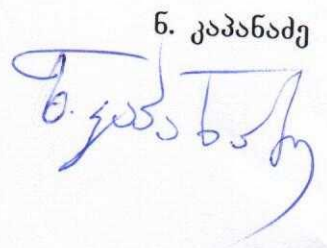 ნ. კაპანაძე
ნ. კაპანაძე